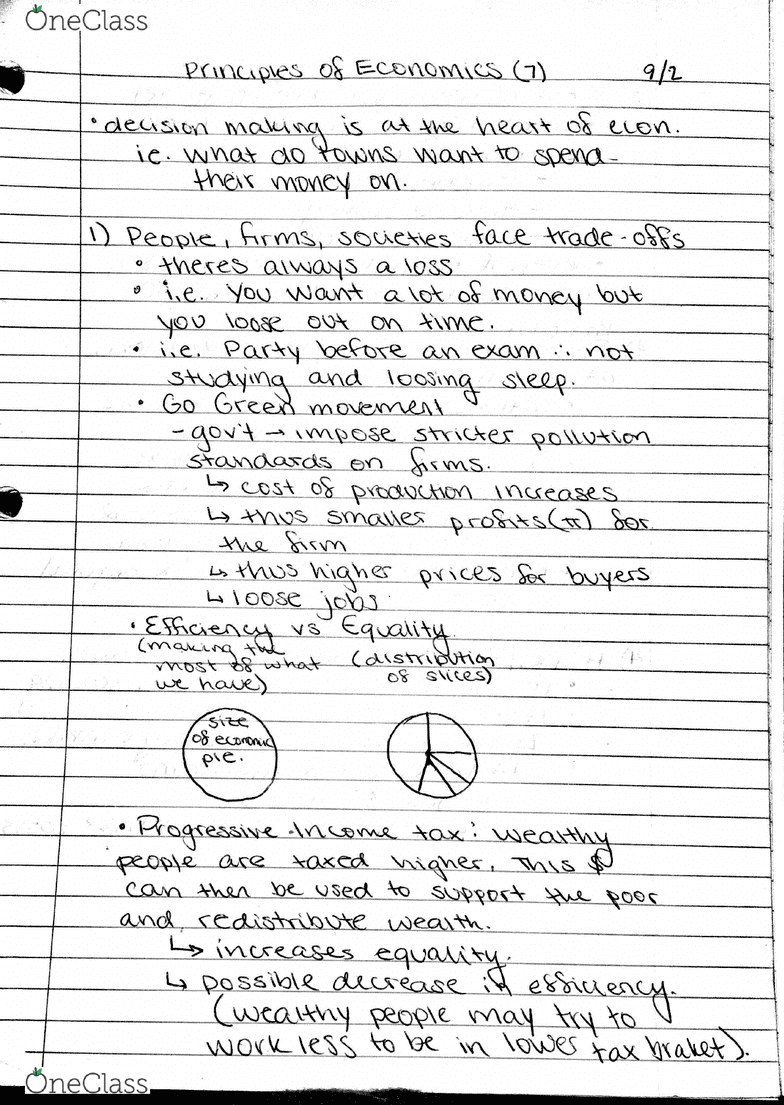 OneClass
Principles of Economics (7) 9/2
• decision making is at the heart of econ.
ie. what do towns want to spend
their money on.
1) People, firms, societies face trade-offs
• theres always a loss
• i.e. you want a lot of money but
you loose out on time.
• i.e. Party before an exam ∴ not
studying and loosing sleep.
• Go Green movement
- gov't → impose stricter pollution
standards on firms.
↳ cost of production increases
↳ thus smaller profits (π) for
the firm
↳ thus higher prices for buyers
↳ loose jobs
• Efficiency vs Equality
(making the
most of what
we have)
(distribution
of slices)
size
of economic
pie.
• Progressive Income tax: wealthy
people are taxed higher. This $
can then be used to support the poor
and redistribute wealth.
↳ increases equality.
↳ possible decrease in efficiency.
(wealthy people may try to
work less to be in lower tax braket).
OneClass